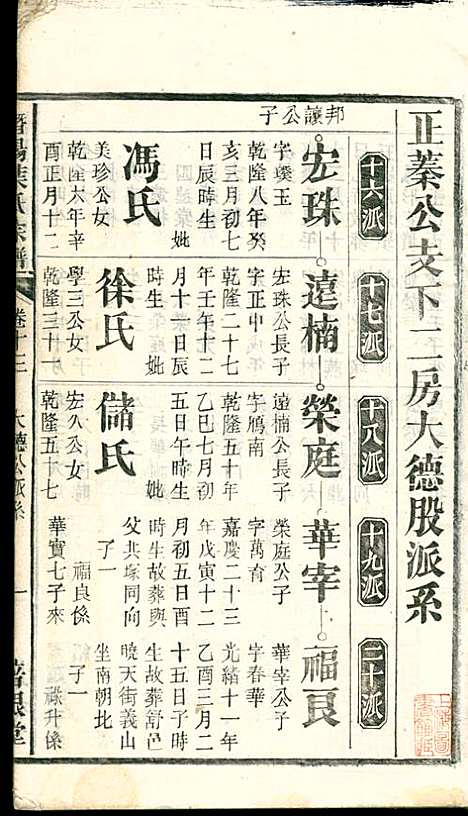 正蓁公支下二房大德股派系
十六派
十七派
十八派
十九派
二十派
邦讓公子
宏珠
遠楠
榮庭
華宰
福良
字璞玉
乾隆八年癸
亥三月初七
日辰時生
妣
馮氏
美珍公女
乾隆六年辛
酉正月十二
宏珠公長子
字正中
乾隆二十七
年壬午十二
月十一日辰
時生
妣
徐氏
學三公女
乾隆三十一
遠楠公長子
字鴈南
乾隆五十年
乙巳七月初
五日午時生
妣
儲氏
宏久公女
乾隆五十七
榮庭公子
字萬育
嘉慶二十三
年戊寅十二
月初五日酉
時生故葬與
父共塚同向
子一
福良係
華實七子來
華宰公子
字春華
光緒十一年
乙酉三月二
十一日子時
生故葬舒邑
曉天街義山
坐南朝北
子一
祿升係
葉氏宗譜
卷十三
大德公派系
一